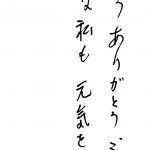 うありがとう
な私も元気を